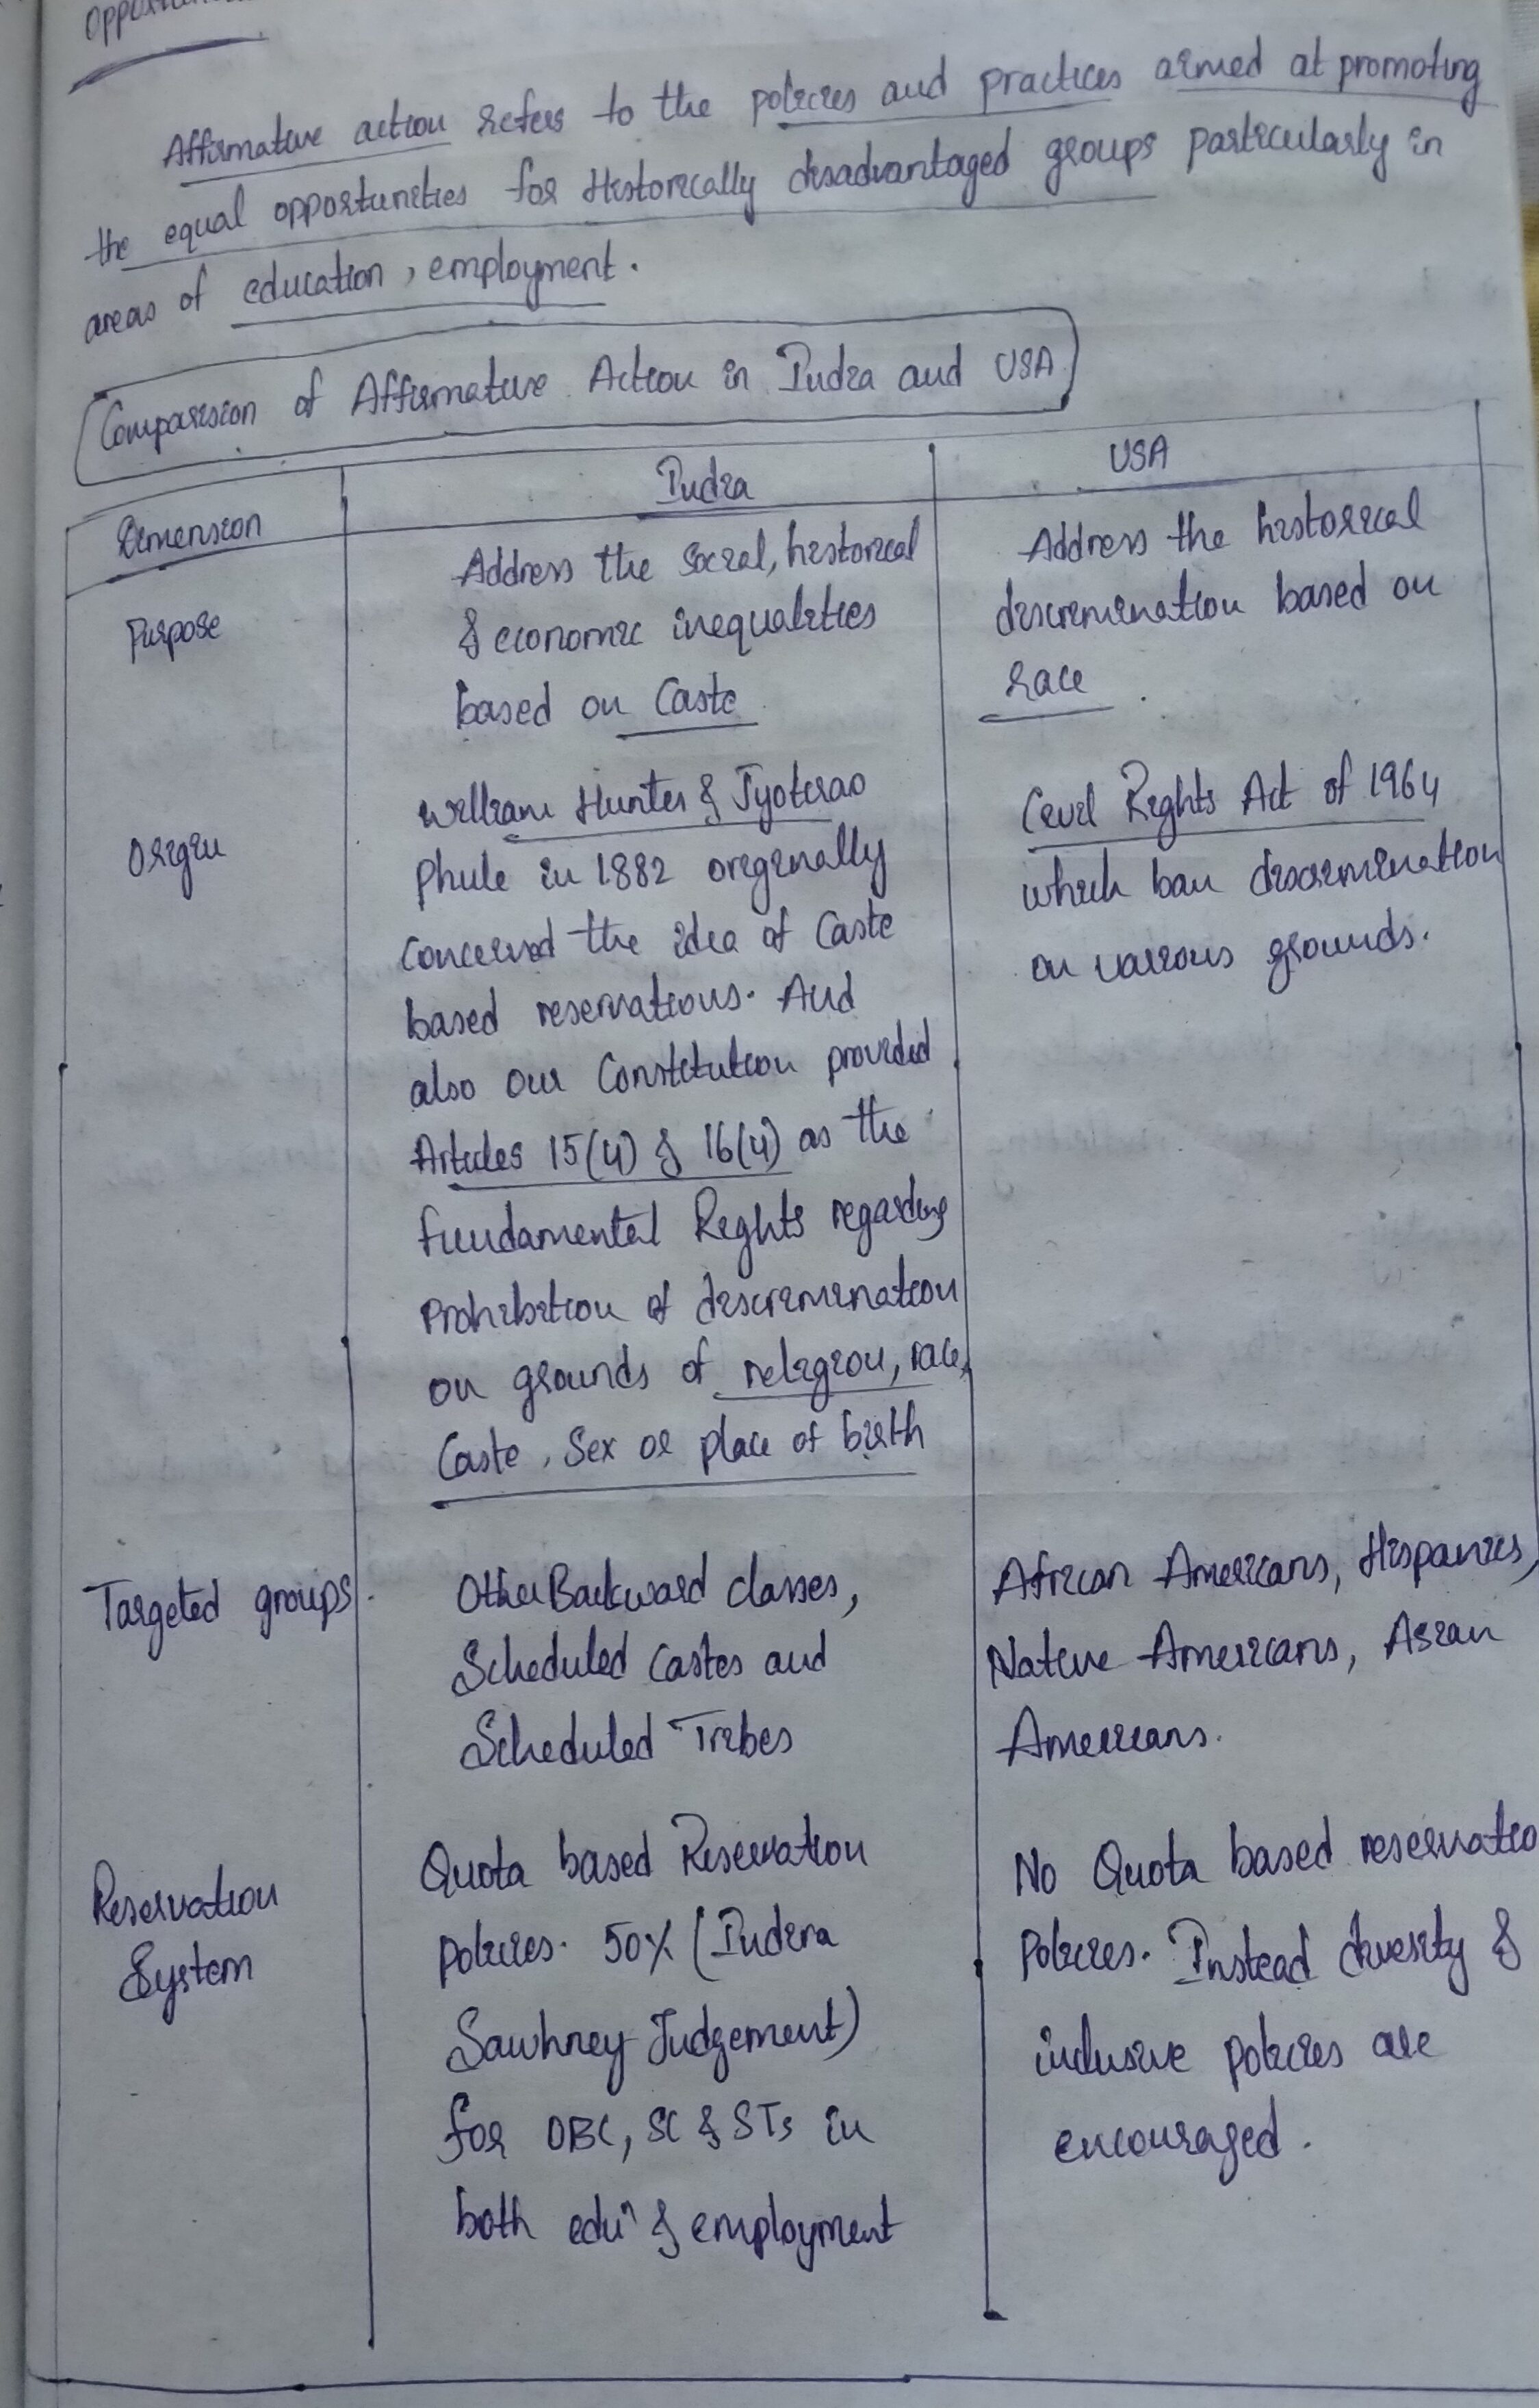 Affirmative action refers to the policies and practices aimed at promoting
the equal opportunities for Historically disadvantaged groups particularly in
areas of education, employment.
Comparision of Affirmative Action in India and USA
Dimension
India
USA
Purpose
Address the social, historical
& economic inequalities
based on Caste
Address the historical
discrimination based on
race.
Origin
William Hunter & Jyotirao
Phule in 1882 originally
conceived the idea of Caste
based reservations. And
also our Constitution provided
Articles 15(4) & 16(4) as the
fundamental Rights regarding
Prohibition of discrimination
on grounds of religion, race,
Caste, Sex or place of birth
Civil Rights Act of 1964
which ban discrimination
on various grounds.
Targeted groups
Other Backward classes,
Scheduled Castes and
Scheduled Tribes
African Americans, Hispanics,
Native Americans, Asian
Americans.
Reservation
System
Quota based Reservation
policies. 50% (Indira
Sawhney Judgement)
for OBC, SC & STs in
both eduⁿ & employment
No Quota based reservatio
Policies. Instead diversity &
inclusive policies are
encouraged.